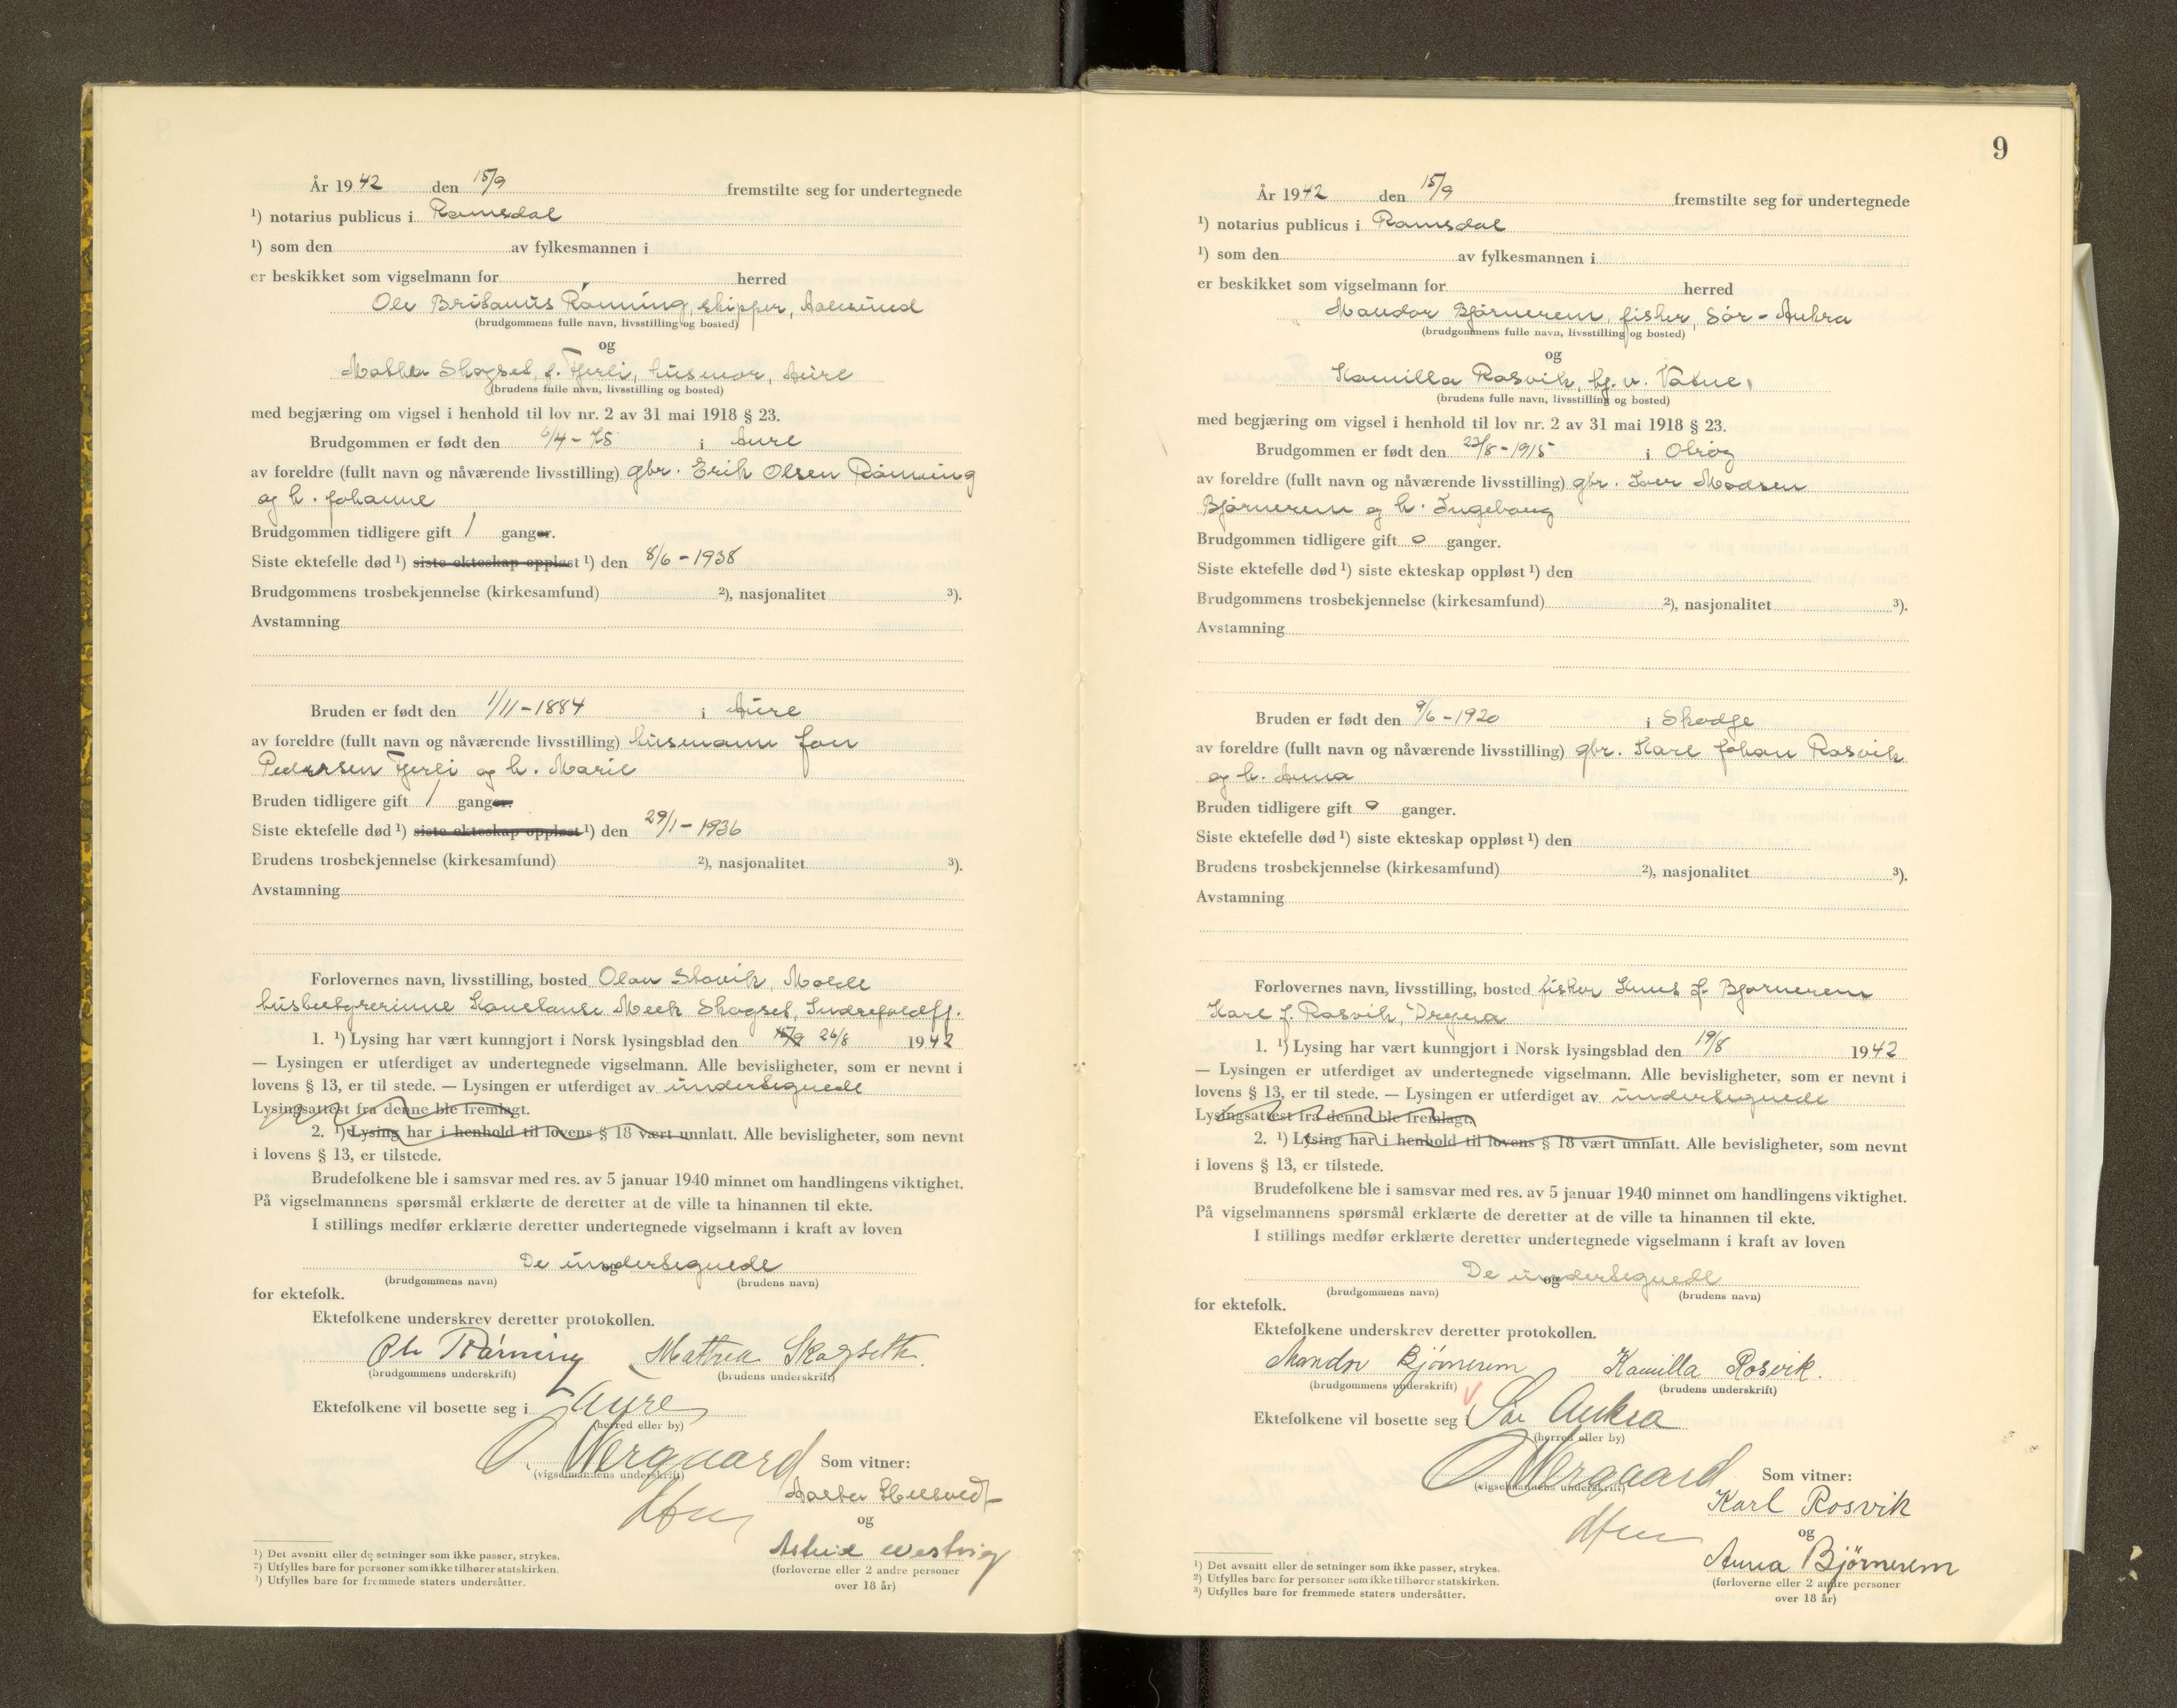 År 1942 den 15/9 fremstilte seg for undertegnede
¹) notarius publicus i Romsdal
¹) som den av fylkesmannen i
er beskikket som vigselmann for herred
Ole Britanus Rønning, skipper, Aalesund
(brudgommens fulle navn, livsstilling og bosted)
og
Mathea Skogset, f. Tjerli, husmor, Aure
(brudens fulle navn, livsstilling og bosted)
med begjæring om vigsel i henhold til lov nr. 2 av 31 mai 1918 § 23.
Brudgommen er født den 6/4 - 75 i Aure
av foreldre (fullt navn og nåværende livsstilling) gbr. Erik Olsen Rønning
og h. Johanne
Brudgommen tidligere gift 1 ganger.
Siste ektefelle død ¹) siste ekteskap oppløst ¹) den 8/6 - 1938
Brudgommens trosbekjennelse (kirkesamfund) ²), nasjonalitet ³).
Avstamning
Bruden er født den 1/11 - 1884 i Aure
av foreldre (fullt navn og nåværende livsstilling) husmann Jon
Pedersen Tjerli og h. Marie
Bruden tidligere gift 1 ganger.
Siste ektefelle død ¹) siste ekteskap oppløst ¹) den 29/1 - 1936
Brudens trosbekjennelse (kirkesamfund) ²), nasjonalitet ³).
Avstamning
Forlovernes navn, livsstilling, bosted Olav Stavik, Molde
husbestyrerinne Konstanse Meek Skogset,
1. ¹) Lysing har vært kunngjort i Norsk lysingsblad den 15/9 26/8 1942
— Lysingen er utferdiget av undertegnede vigselmann. Alle bevisligheter, som er nevnt i
lovens § 13, er til stede. — Lysingen er utferdiget av undertegnede
Lysingsattest fra denne ble fremlagt.
2. ¹) Lysing har i henhold til lovens § 18 vært unnlatt. Alle bevisligheter, som nevnt
i lovens § 13, er tilstede.
Brudefolkene ble i samsvar med res. av 5 januar 1940 minnet om handlingens viktighet.
På vigselmannens spørsmål erklærte de deretter at de ville ta hinannen til ekte.
I stillings medfør erklærte deretter undertegnede vigselmann i kraft av loven
De undertegnede
og
(brudgommens navn) (brudens navn)
for ektefolk.
Ektefolkene underskrev deretter protokollen.
Ole Rønning Mathea Skogseth.
(brudgommens underskrift) (brudens underskrift)
Ektefolkene vil bosette seg i Aure
(herred eller by)
O. Wergaard
(vigselmannens underskrift) Som vitner:
og
Astrid Westvig
(forloverne eller 2 andre personer
over 18 år)
¹) Det avsnitt eller de setninger som ikke passer, strykes.
²) Utfylles bare for personer som ikke tilhører statskirken.
³) Utfylles bare for fremmede staters undersåtter.
9
År 1942 den 15/9 fremstilte seg for undertegnede
¹) notarius publicus i Romsdal
¹) som den av fylkesmannen i
er beskikket som vigselmann for herred
Mandor Bjørnerem, fisker, Sør-Aukra
(brudgommens fulle navn, livsstilling og bosted)
og
Kamilla Rosvik, hj. v. Vatne,
(brudens fulle navn, livsstilling og bosted)
med begjæring om vigsel i henhold til lov nr. 2 av 31 mai 1918 § 23.
Brudgommen er født den 23/8 - 1915 i
av foreldre (fullt navn og nåværende livsstilling) gbr. Iver Madsen
Bjørnerem og h. Ingeborg
Brudgommen tidligere gift 0 ganger.
Siste ektefelle død ¹) siste ekteskap oppløst ¹) den
Brudgommens trosbekjennelse (kirkesamfund) ²), nasjonalitet ³).
Avstamning
Bruden er født den 9/6 - 1920 i Skodje
av foreldre (fullt navn og nåværende livsstilling) gbr. Karl Johan Rosvik
og h. Anna
Bruden tidligere gift 0 ganger.
Siste ektefelle død ¹) siste ekteskap oppløst ¹) den
Brudens trosbekjennelse (kirkesamfund) ²), nasjonalitet ³).
Avstamning
Forlovernes navn, livsstilling, bosted fisker J. Bjørnerem
Karl J. Rosvik, Dryna
1. ¹) Lysing har vært kunngjort i Norsk lysingsblad den 19/8 1942
— Lysingen er utferdiget av undertegnede vigselmann. Alle bevisligheter, som er nevnt i
lovens § 13, er til stede. — Lysingen er utferdiget av undertegnede
Lysingsattest fra denne ble fremlagt.
2. ¹) Lysing har i henhold til lovens § 18 vært unnlatt. Alle bevisligheter, som nevnt
i lovens § 13, er tilstede.
Brudefolkene ble i samsvar med res. av 5 januar 1940 minnet om handlingens viktighet.
På vigselmannens spørsmål erklærte de deretter at de ville ta hinannen til ekte.
I stillings medfør erklærte deretter undertegnede vigselmann i kraft av loven
De undertegnede
og
(brudgommens navn) (brudens navn)
for ektefolk.
Ektefolkene underskrev deretter protokollen.
Mandor Bjørnerem Kamilla Rosvik.
(brudgommens underskrift) (brudens underskrift)
Ektefolkene vil bosette seg i Sør Aukra
(herred eller by)
O. Wergaard
(vigselmannens underskrift) Som vitner:
Karl Rosvik
og
Anna Bjørnerem
(forloverne eller 2 andre personer
over 18 år)
¹) Det avsnitt eller de setninger som ikke passer, strykes.
²) Utfylles bare for personer som ikke tilhører statskirken.
³) Utfylles bare for fremmede staters undersåtter.